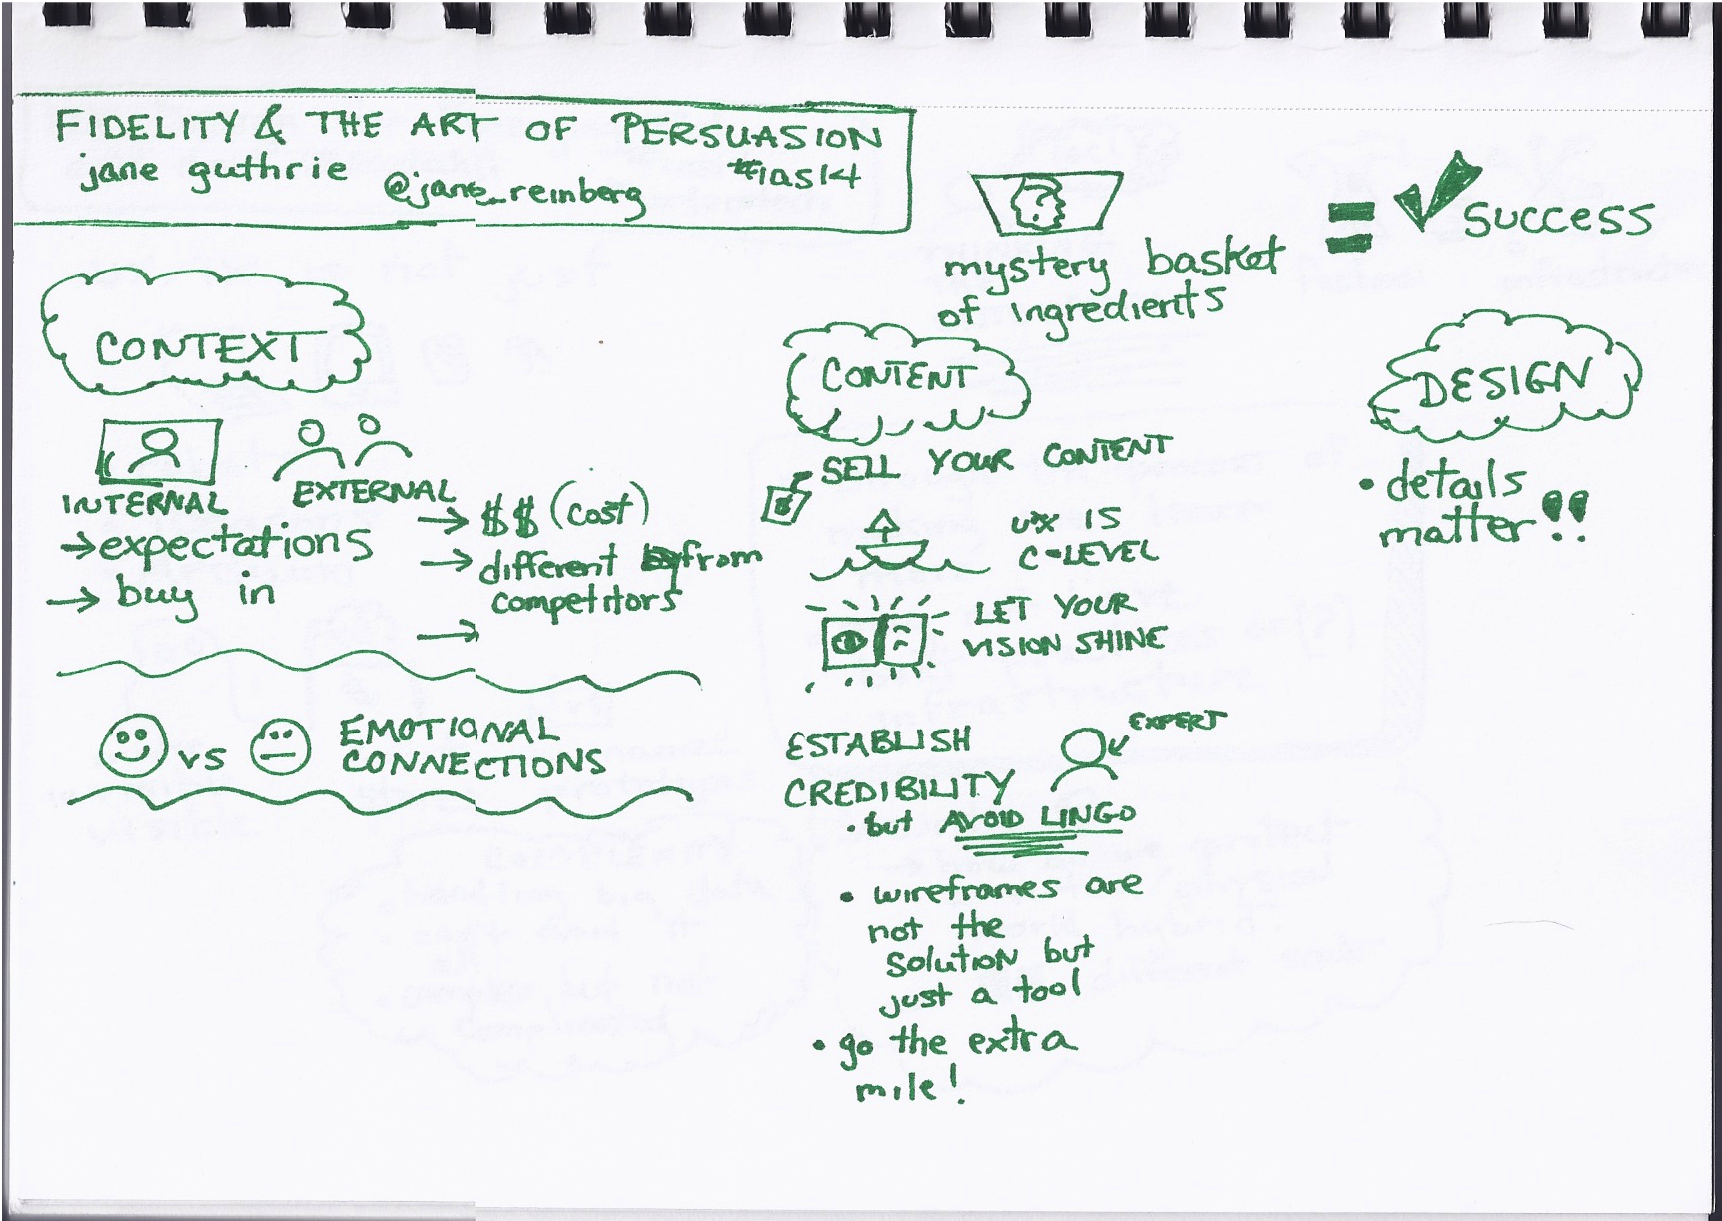 FIDELITY & THE ART OF PERSUASION
jane guthrie @jane_reinberg #ias14
mystery basket
of ingredients
= success
CONTEXT
INTERNAL
→ expectations
→ buy in
EXTERNAL
→ $$ (cost)
→ different from
competitors
→
vs
EMOTIONAL
CONNECTIONS
CONTENT
SELL YOUR CONTENT
UX IS
C-LEVEL
LET YOUR
VISION SHINE
ESTABLISH
CREDIBILITY
EXPERT
• but AVOID LINGO
• wireframes are
not the
solution but
just a tool
• go the extra
mile!
DESIGN
• details
matter!!